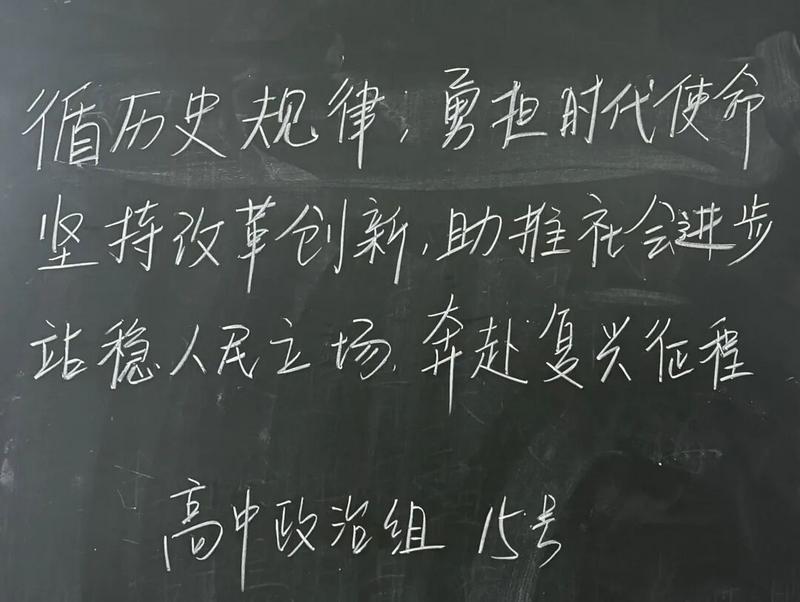 循历史规律,勇担时代使命
坚持改革创新,助推社会进步
站稳人民立场,奔赴复兴征程
高中政治组 15号